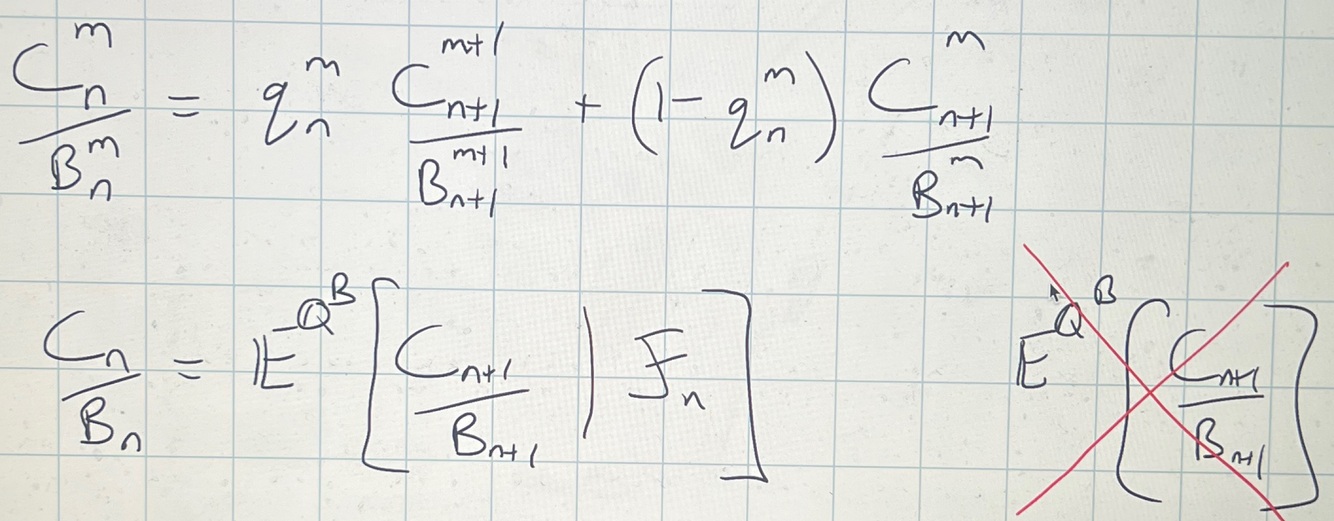 $\frac{C_n^m}{B_n^m} = q_n^m \frac{C_{n+1}^{m+1}}{B_{n+1}^{m+1}} + (1 - q_n^m) \frac{C_{n+1}^m}{B_{n+1}^m}$
$\frac{C_n}{B_n} = \mathbb{E}^{Q^B} \left[ \frac{C_{n+1}}{B_{n+1}} \middle| \mathcal{F}_n \right]$ $\mathbb{E}^{Q^B} \left[ \frac{C_{n+1}}{B_{n+1}} \right]$